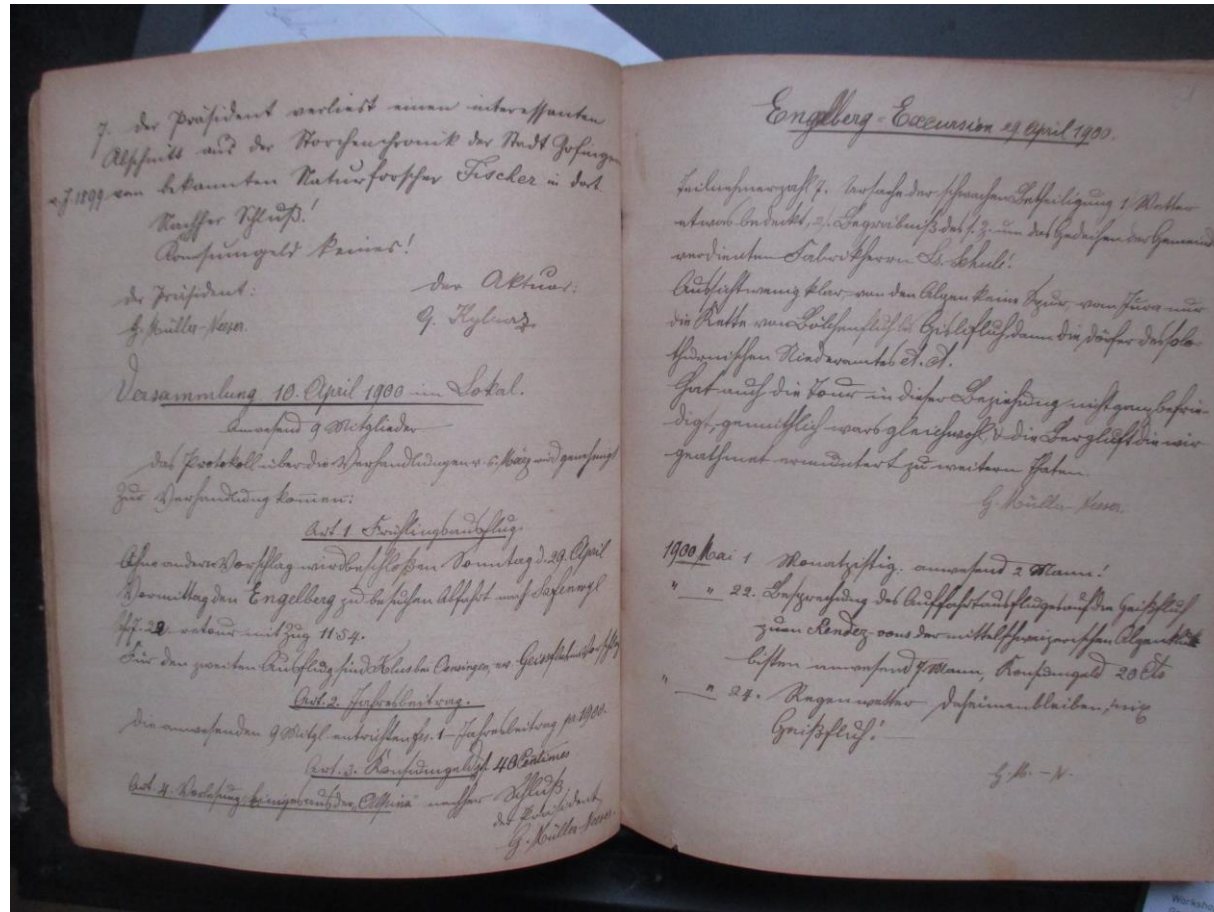 7. Der Präsident verliest einen interessanten
Abschnitt aus der Storchenchronik der Stadt Zofingen
v. J. 1899 vom bekannten Naturforscher Fischer in dort
Nachher Schluß!
Konsumgeld keines!
der Präsident:
der Aktuar:
H. Müller-Neeser.
Versammlung 10. April 1900 im Lokal.
Anwesend 9 Mitglieder
Das Protokoll über die Verhandlungen v. 5. März wird genehmigt
Zur Verhandlung kommen:
Art. 1 Frühlingsausflug.
Ohne andern Vorschlag wird beschloßen Sonntag d. 29. April
Vormittag den Engelberg zu besuchen Abfahrt nach Safenwyl
retour mit Zug 1154.
Für den zweiten Ausflug sind Klus bei Oensingen, ev. Geissfluh
Art. 2. Jahresbeitrag.
Die anwesenden 9 Mitgl. entrichten fr. 1 – Jahresbeitrag pr 1900.
Art. 3. Konsumgeld 40 Centimes
Art. 4. Vorlesung Einiges aus der "Alpina" nachher Schluß,
der Präsident,
H. Müller-Neeser.
Engelberg-Excursion 29 April 1900.
Teilnehmerzahl 7. Ursache der schwachen Betheiligung 1/ Wetter
etwas bedeckt, 2/. Begräbniß des s. Z. um das Gedeihen der Gemeind
verdienten Fabrikherrn
Aussicht wenig klar, von den Alpen keine Spur, vom Jura nur
die Kette von Bölchenfluh bis Gislifluh, dann die Dörfer des solo-
thurnischen Niederamtes
Hat auch die Tour in dieser Beziehung nicht ganz befrie-
digt, gemüthlich wars gleichwohl & die Bergluft die wir
geathmet ermuntert zu weitern Thaten.
H. Müller-Neeser.
1900 Mai 1 Monatzistig. anwesend 2 Mann!
" " 22. Besprechung des Auffahrtausfluges auf die Geißfluh
zum Rendez-vous der mittelschweizerischen Alpenklub
bisten anwesend 7 Mann, Konsumgeld 20 Cts
" " 24. Regenwetter Daheimenbleiben, nix
Geißfluh!
H. M. - N.